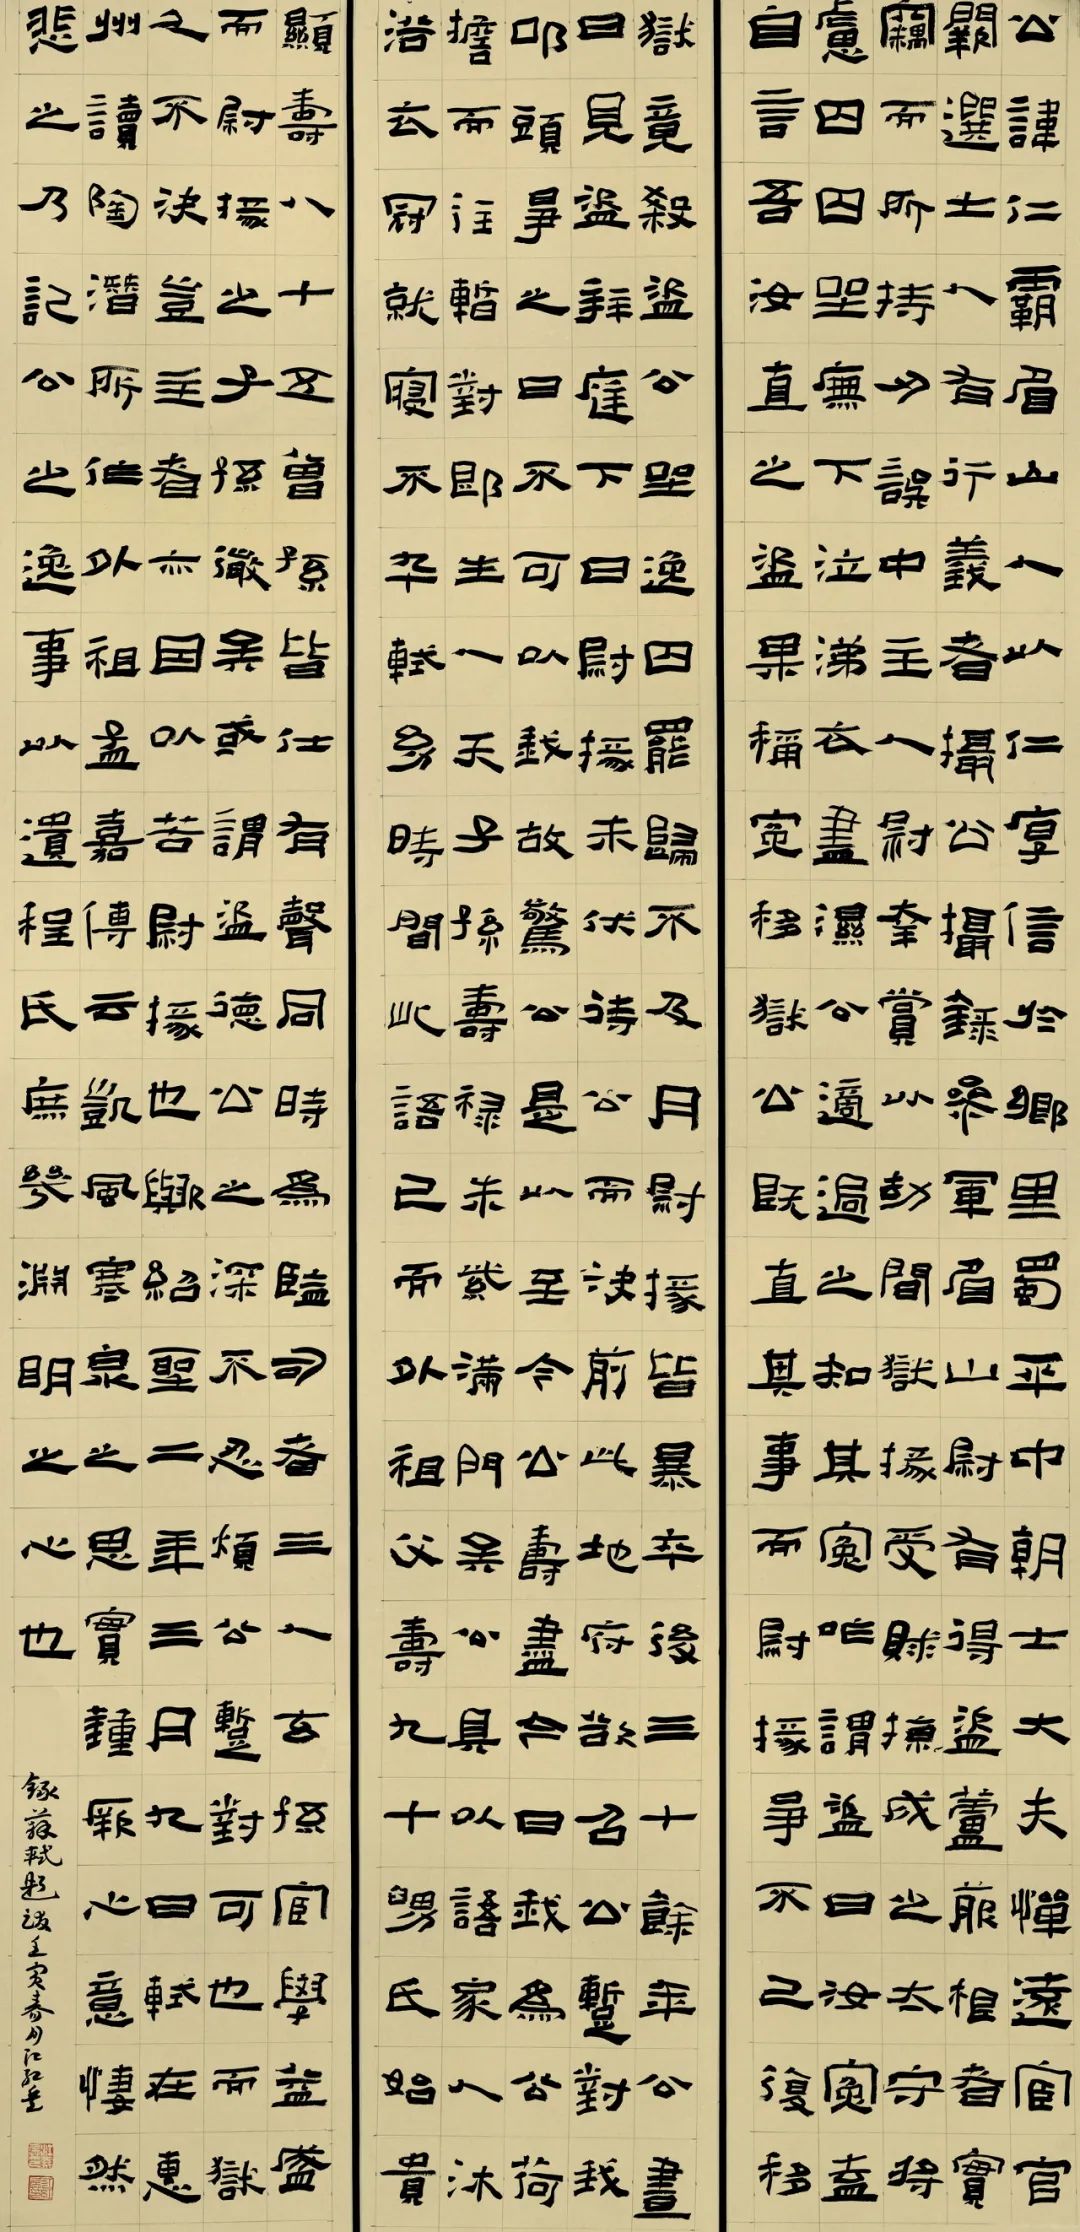 公諱仁霸眉山人以仁厚信於鄉里蜀平中朝士大夫憚遠宦官
闕選士人有行義者攝公攝錄參軍眉山尉有得盜蘆菔根者實
竊而所持刃誤中主人尉幸賞以劫聞獄掾受賕掠成之太守將
慮囚囚坐廡下泣涕衣盡濕公適過之知其冤咋謂盜曰汝冤盍
自言吾汝直之盜果稱冤移獄公既直其事而尉掾爭不已復移
獄竟殺盜公坐逸囚罷歸不及月尉掾皆暴卒後三十餘年公晝
日見盜拜庭下曰尉掾未伏待公而決前此地府欲召公暫對我
叩頭爭之曰不可以我故驚公是以至今公壽盡今日我為公荷
擔而往暫對即生人天子孫壽祿朱紫滿門矣公具以語家人沐
浴衣冠就寢不卒軾幼時聞此語已而外祖父壽九十舅氏始貴
顯壽八十五曾孫皆仕有聲同時為監司者三人玄孫宦學益盛
而尉掾之子孫微矣或謂盜德公之深不忍煩公暫對可也而獄
之不決豈主者亦因以苦尉掾也歟紹聖二年三月九日軾在惠
州讀陶潛所作外祖孟嘉傳云凱風寒泉之思實鍾厥心意悽然
悲之乃記公之逸事以遺程氏庶幾淵明之心也
錄蘇軾題跋壬寅春月江紅